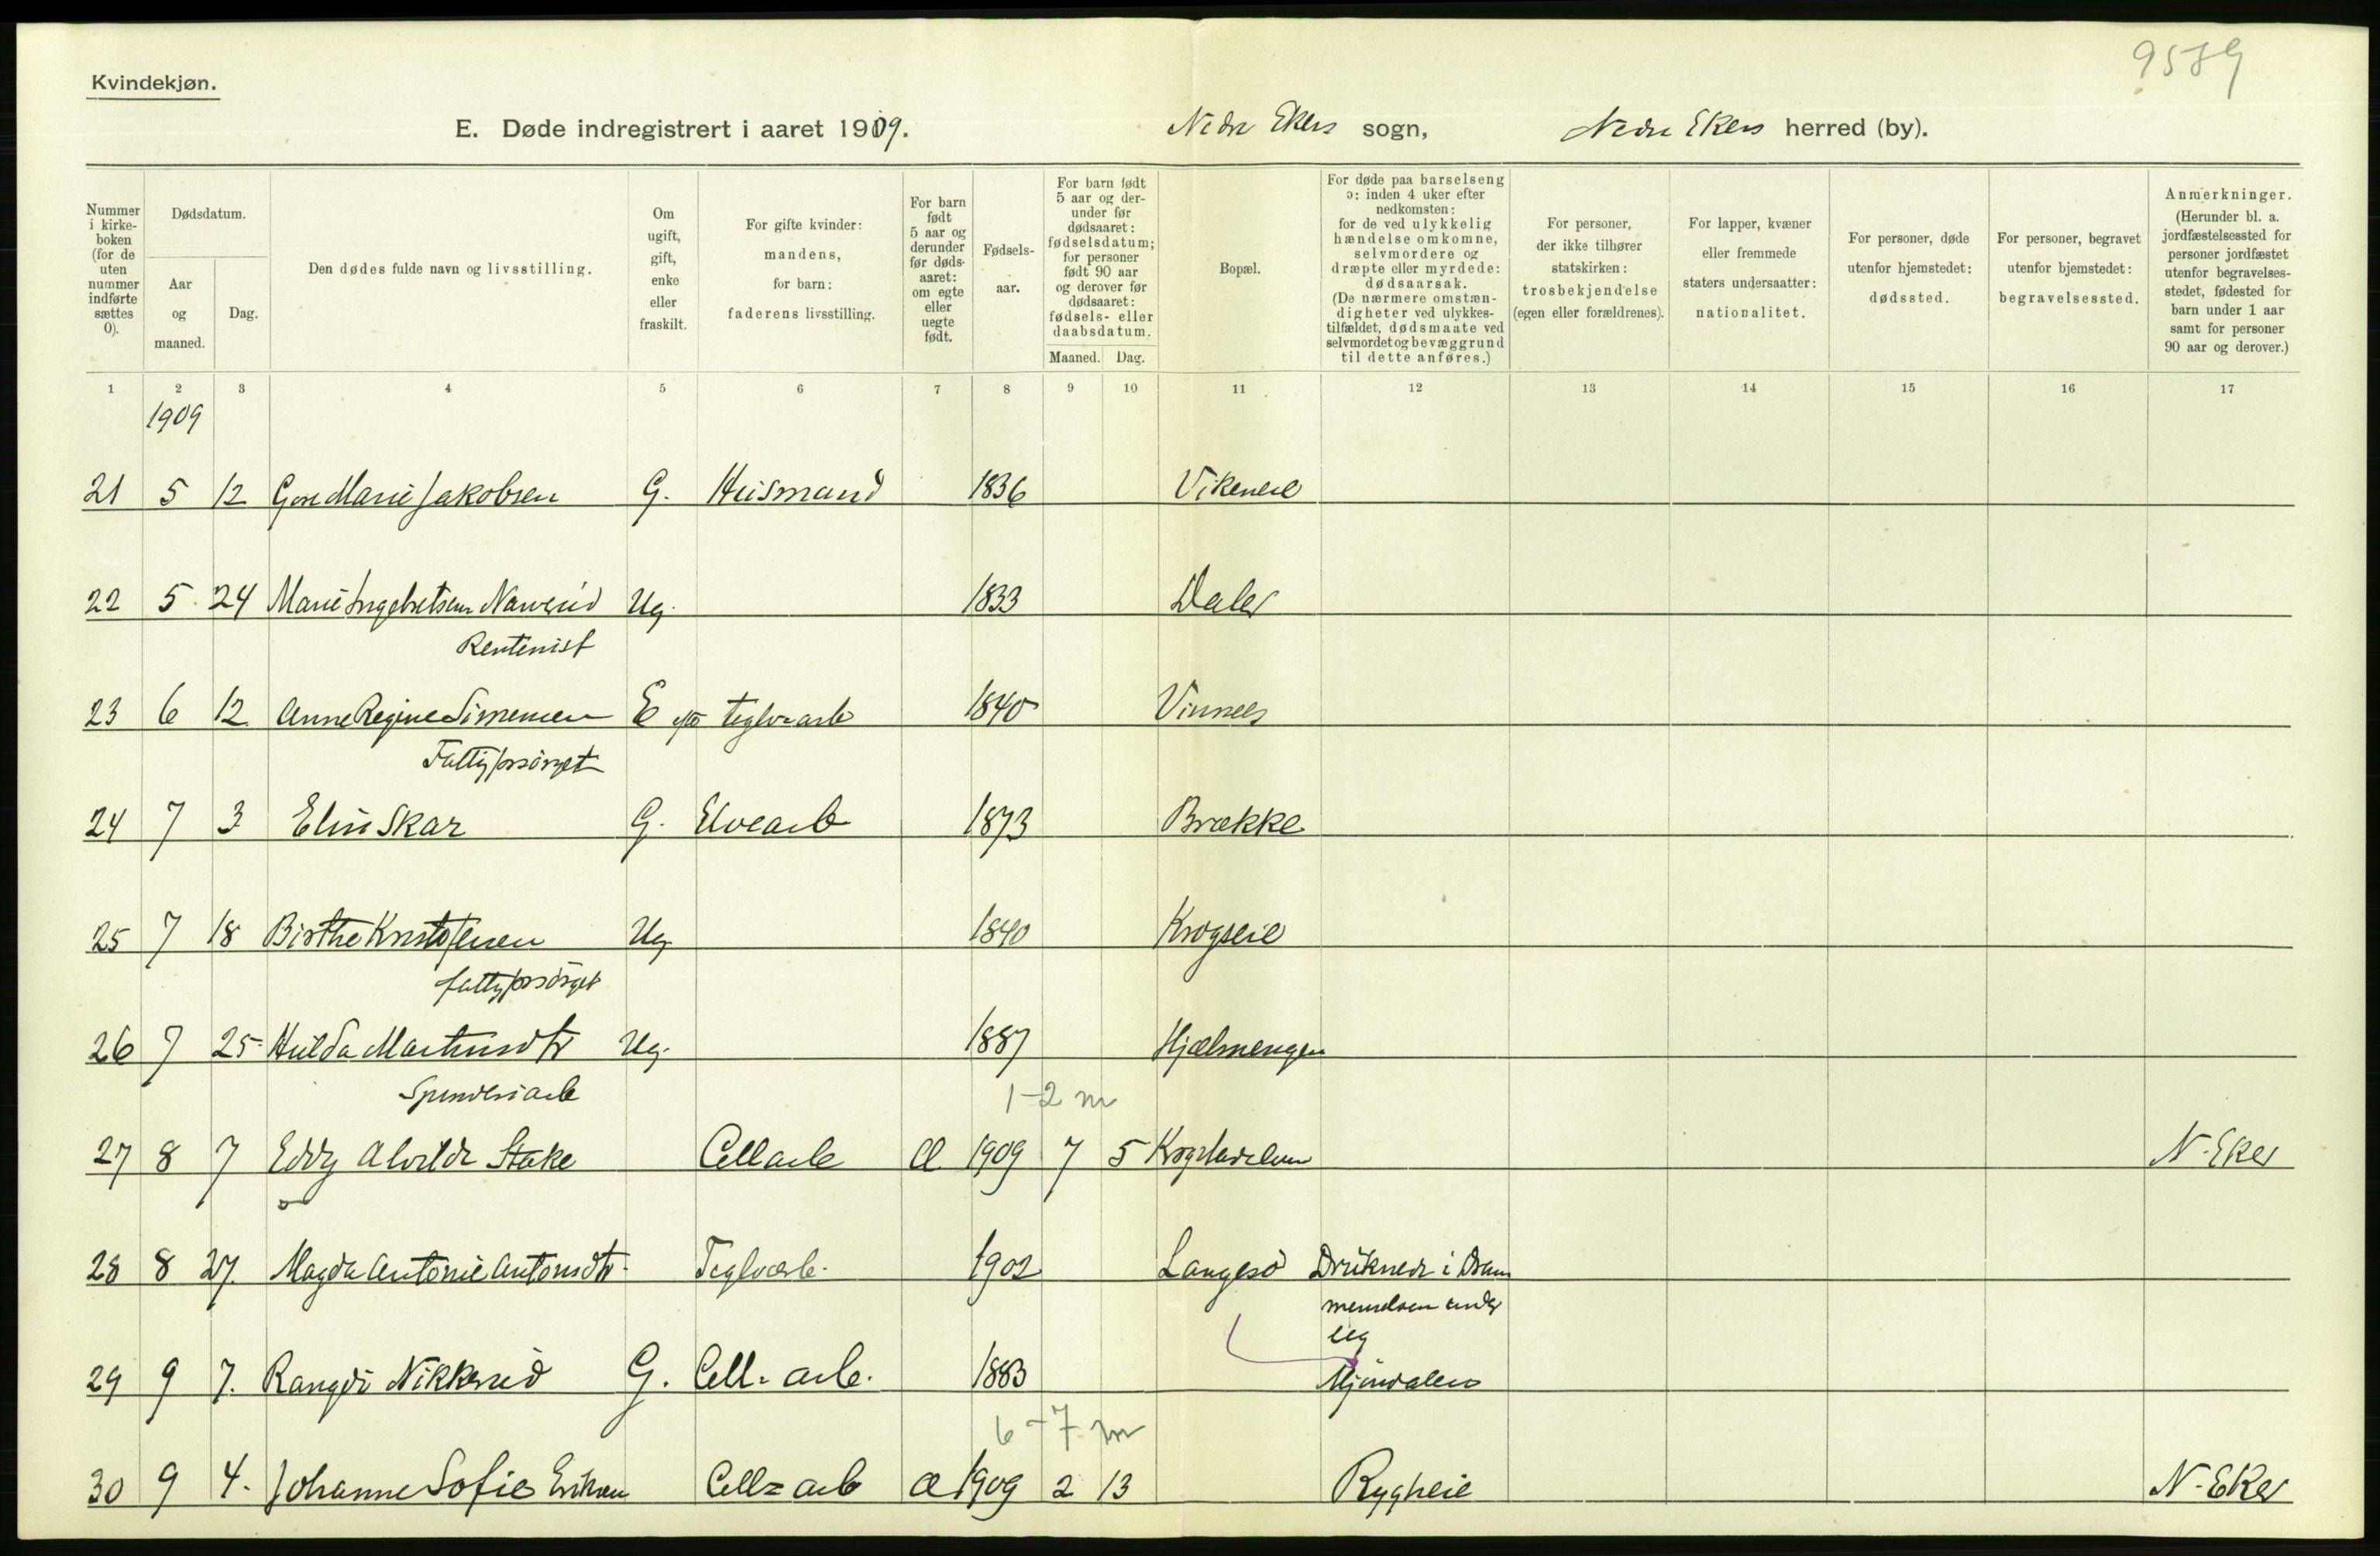 9589
Kvindekjøn.
E. Døde indregistrert i aaret 1909. Nedre Ekers sogn, Nedre Ekers herred (by).
Nummer i kirke-boken (for de uten nummer indførte sættes 0).
Dødsdatum.
Aar og maaned.
Dag.
Den dødes fulde navn og livsstilling.
Om ugift, gift, enke eller fraskilt.
For gifte kvinder: mandens, for barn: faderens livsstilling.
For barn født 5 aar og derunder før døds-aaret: om egte eller uegte født.
Fødsels-aar.
For barn født 5 aar og der-under før dødsaaret: fødselsdatum; for personer født 90 aar og derover før dødsaaret: fødsels- eller daabsdatum.
Maaned. Dag.
Bopæl.
For døde paa barselseng ɔ: inden 4 uker efter nedkomsten: for de ved ulykkelig hændelse omkomne, selvmordere og dræpte eller myrdede: dødsaarsak. (De nærmere omstæn-digheter ved ulykkes-tilfældet, dødsmaate ved selvmordet og bevæggrund til dette anføres.)
For personer, der ikke tilhører statskirken: trosbekjendelse (egen eller forældrenes).
For lapper, kvæner eller fremmede staters undersaatter: nationalitet.
For personer, døde utenfor hjemstedet: dødssted.
For personer, begravet utenfor bjemstedet: begravelsessted.
Anmerkninger. (Herunder bl. a. jordfæstelsessted for personer jordfæstet utenfor begravelses-stedet, fødested for barn under 1 aar samt for personer 90 aar og derover.)
1 2 3 4 5 6 7 8 9 10 11 12 13 14 15 16 17
1909
21 5 12 Marie Jakobsen G. Husmand 1836 Vikeneie
22 5 24 Marie Ingebretsen Ug. 1833 Daler
Rentenist
23 6 12 Anne Regine Simensen E eft teglv=arb 1840
Fattigforsörget
24 7 3 Elin Skar G. Elvearb 1873 Brække
25 7 18 Birthe Kristofersen Ug 1840 Krogseie
fattigforsörget
26 7 25 Hulda Martinsdtr Ug. 1887 Hjælmengen
Spinderiarb
1-2 m
27 8 7 Eddy Alvilde Stake Cellarb Æ 1909 7 5 N-Eker
28 8 27 Magda Antonie Antonsdtr. Teglvarb. 1902 Langesö Druknede i Dram
menselven under
leg
29 9 7. Rangdi Nikkerud G. Cell=arb. 1883 Mjöndalen
6-7 m
30 9 4. Johanne Sofie Eriksen Cell=arb Æ 1909 2 13 Rygheie N-Eker